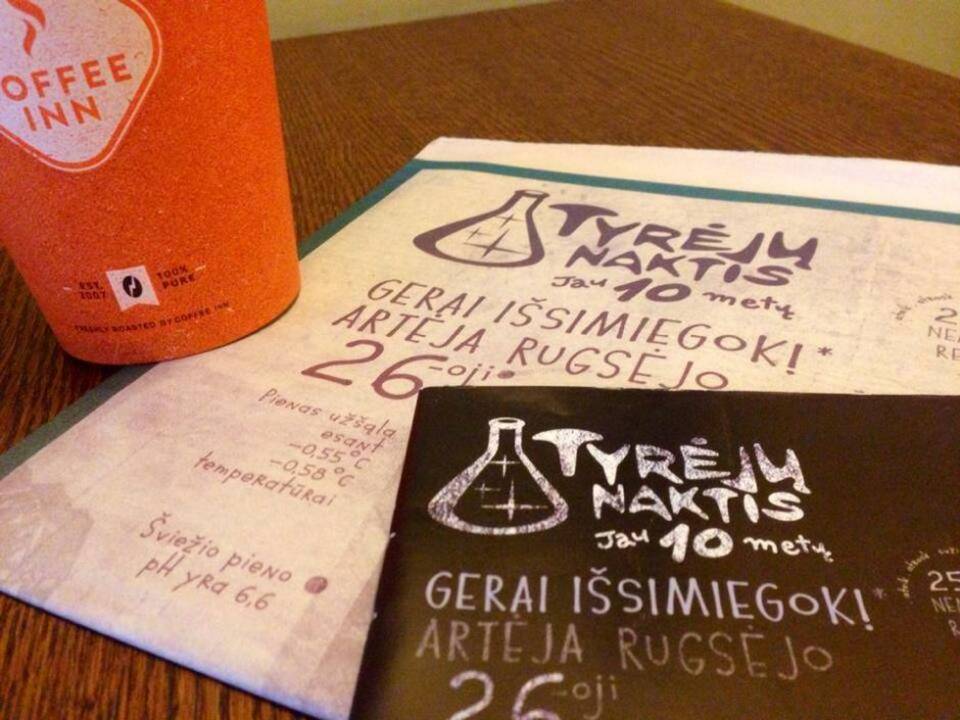 OFFEE
INN
EST. 2007
100% PURE
FRESHLY ROASTED BY COFFEE INN
TYRĖJŲ
NAKTIS
jau 10 metų
GERAI IŠSIMIEGOK!*
ARTĖJA RUGSĖJO
26-oji
Pienas užšąla
esant
-0,55°C
-0,58°C
temperatūrai
Šviežio pieno
pH yra 6,6
TYRĖJŲ
NAKTIS
jau 10 metų
GERAI IŠSIMIEGOK!*
ARTĖJA RUGSĖJO
26-oji
25